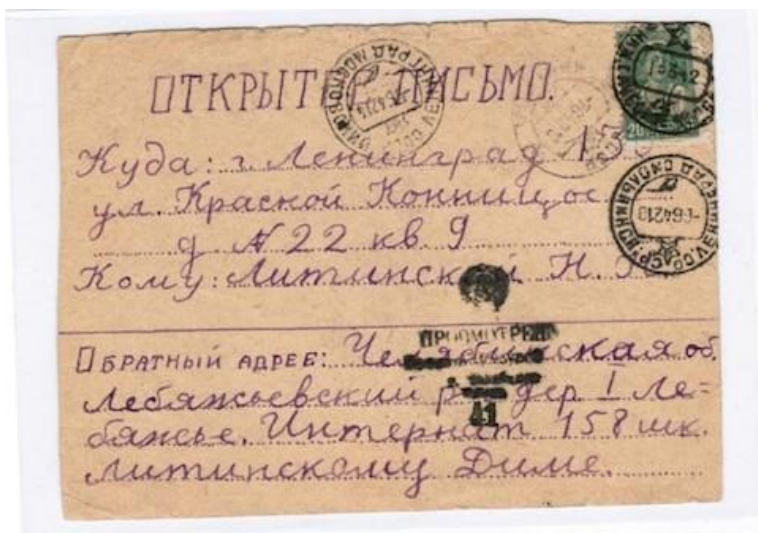 ОТКРЫТОЕ ПИСЬМО.
Куда: г. Ленинград 15
ул. Красной Конницы
д №22 кв 9
Кому: Литинской Н.
ОБРАТНЫЙ АДРЕС: Челябинская об.
Лебяжьевский р. дер I Ле-
бяжье. Интернат 158 шк.
Литинскому Диме.
ПРОСМОТРЕНО
41
20